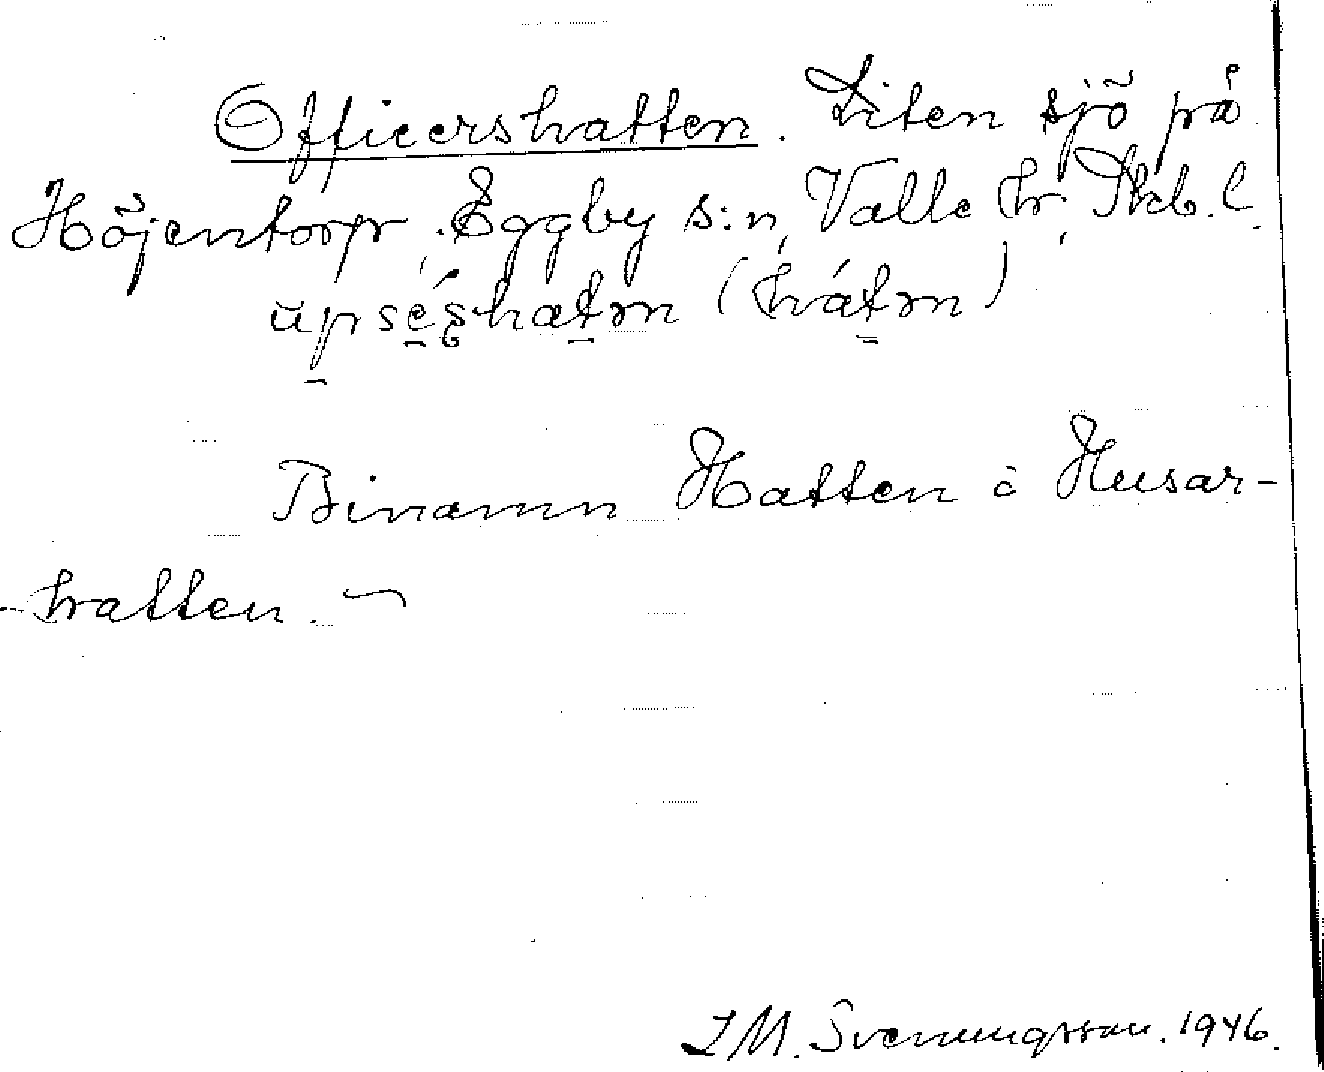 Officershatten. Liten sjö på
Höjentorp, Eggby s:n, Valle hr, Skb. l.
(hátn)
Binamn Hatten o Husar-
-hatten. –
I M. Svenungsson. 1946.